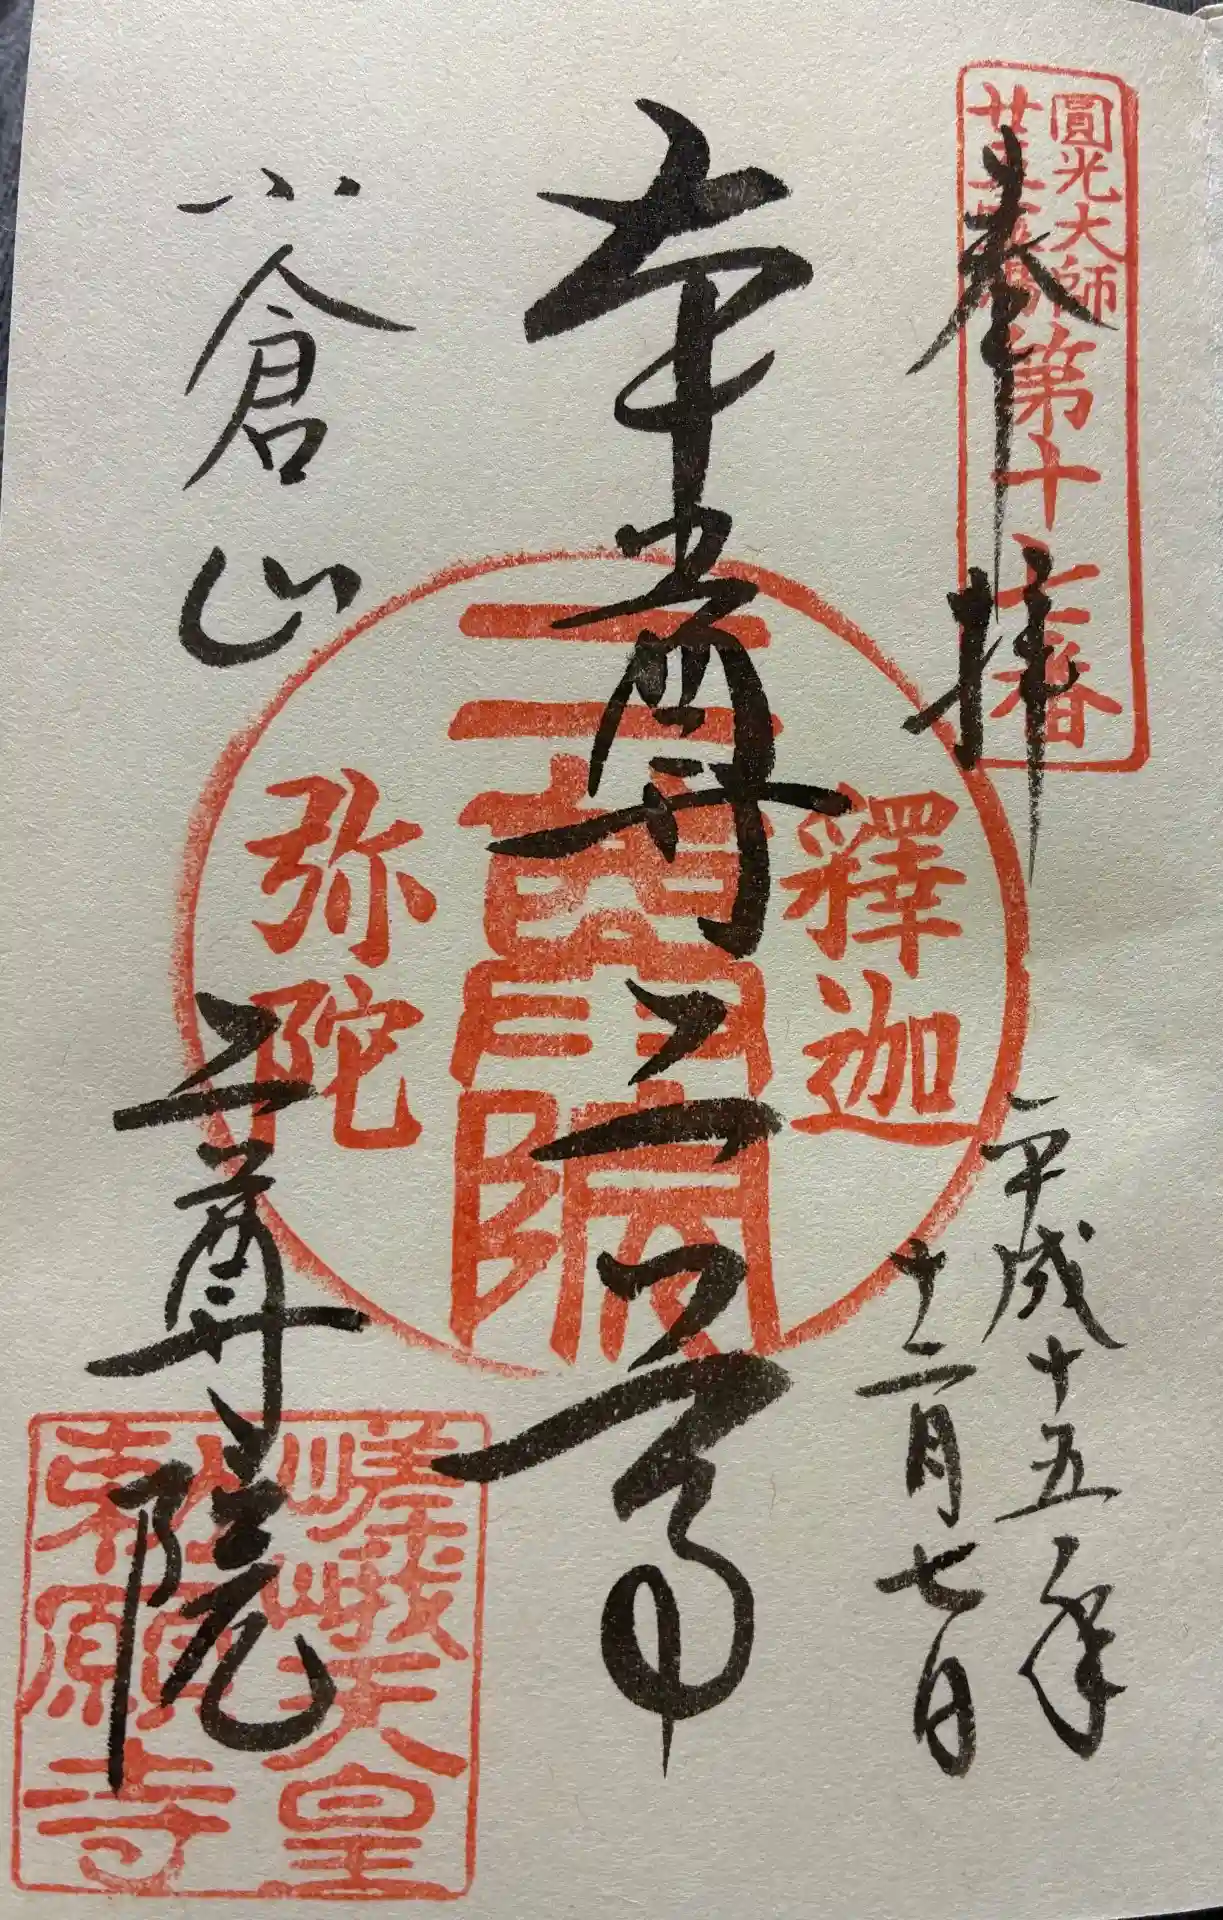 圓光大師
廿五霊場
第十七番
奉拝
平成十五年
十二月七日
本尊二尊
釋迦
二尊院
弥陀
小倉山
二尊院
嵯峨天皇
勅願寺